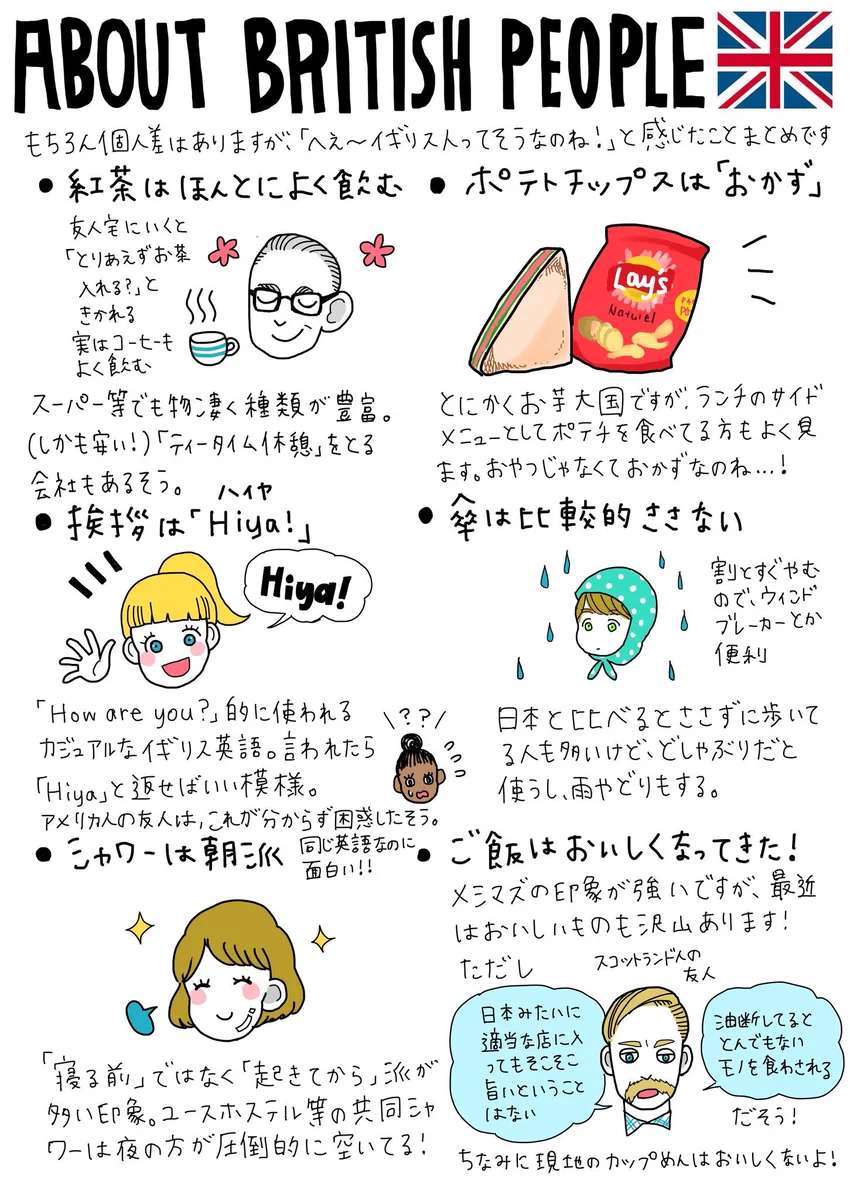 ABOUT BRITISH PEOPLE
もちろん個人差はありますが、「へえ〜イギリス人ってそうなのね!」と感じたことまとめです
• 紅茶はほんとによく飲む
友人宅にいくと
「とりあえずお茶
入れる?」と
きかれる
実はコーヒーも
よく飲む
スーパー等でも物凄く種類が豊富。
(しかも安い!)「ティータイム休憩」をとる
会社もあるそう。
• ポテトチップスは「おかず」
Lay's
Naturel
とにかくお芋大国ですが、ランチのサイド
メニューとしてポテチを食べてる方もよく見
ます。おやつじゃなくておかずなのね…!
ハイヤ
• 挨拶は「Hiya!」
Hiya!
「How are you?」的に使われる
カジュアルなイギリス英語。言われたら
「Hiya」と返せばいい模様。
\??/
アメリカ人の友人は,これが分からず困惑したそう。
同じ英語なのに
面白い!!
• 傘は比較的ささない
割とすぐやむ
ので、ウィンド
ブレーカーとか
便利
日本と比べるとささずに歩いて
る人も多いけど、どしゃぶりだと
使うし、雨やどりもする。
• シャワーは朝派
「寝る前」ではなく「起きてから」派が
多い印象。ユースホステル等の共同シャ
ワーは夜の方が圧倒的に空いてる!
• ご飯はおいしくなってきた!
メシマズの印象が強いですが、最近
はおいしいものも沢山あります!
ただし
スコットランド人の
友人
日本みたいに
適当な店に入
ってもそこそこ
旨いということ
はない
油断してると
とんでもない
モノを食わされる
だそう!
ちなみに現地のカップめんはおいしくないよ!